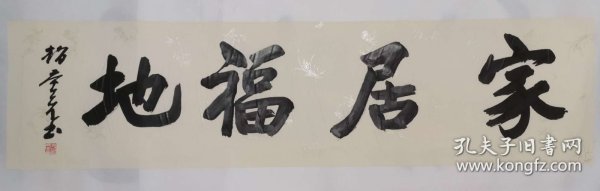 家居福地
孔夫子旧书网
www.kongfz.com